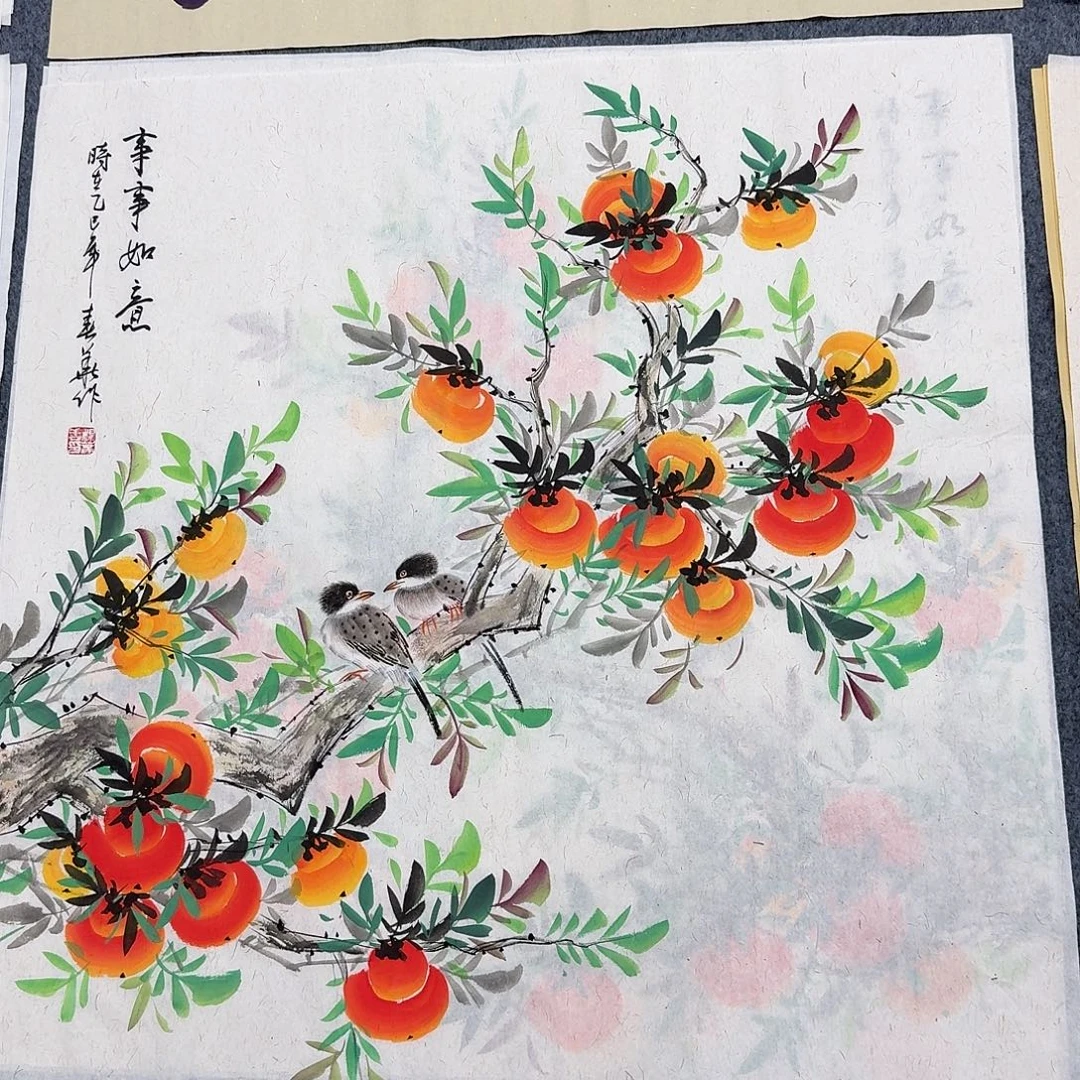 事事如意
時在乙巳年 春華作